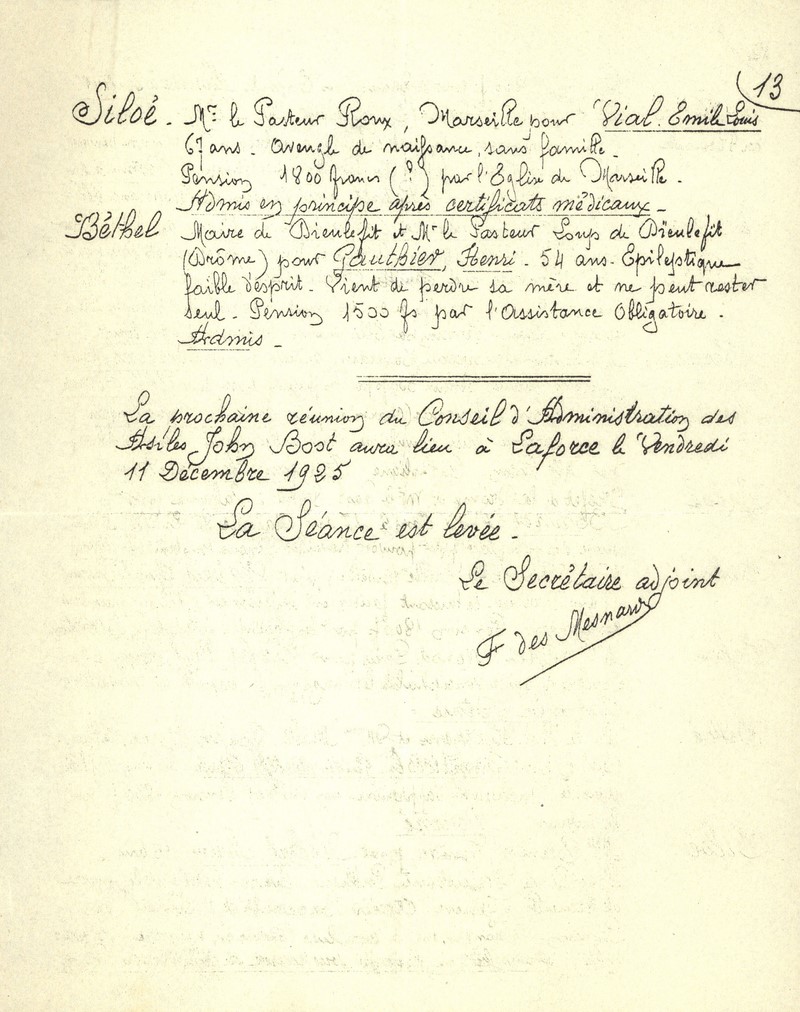 13
Siloé. Mr. le Pasteur Roux, Marseille pour Vial Emile Louis
67 ans. Aveugle de naissance, sans famille.
Pension 1800 francs (?) par l'Eglise de Marseille.
Admis en principe après certificats médicaux.
Béthel Maire de Dieulefit et Mr le Pasteur Loup de Dieulefit
(Drôme) pour Gauthier, Henri. 54 ans. Epileptique
faible d'esprit. Vient de perdre sa mère et ne peut rester
seul. Pension 1500 fs par l'Assistance Obligatoire.
Admis.
La prochaine réunion du Conseil d'Administration des
Asiles John Bost aura lieu à Laforce le Vendredi
11 Décembre 1925
La Séance est levée.
Le Secrétaire adjoint
F des Mesnards